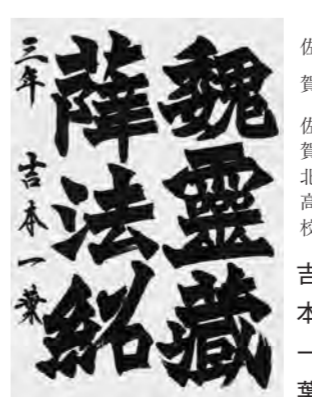 魏靈藏
薛法紹
三年 吉本一葉
佐賀
佐賀北高校
吉本一葉